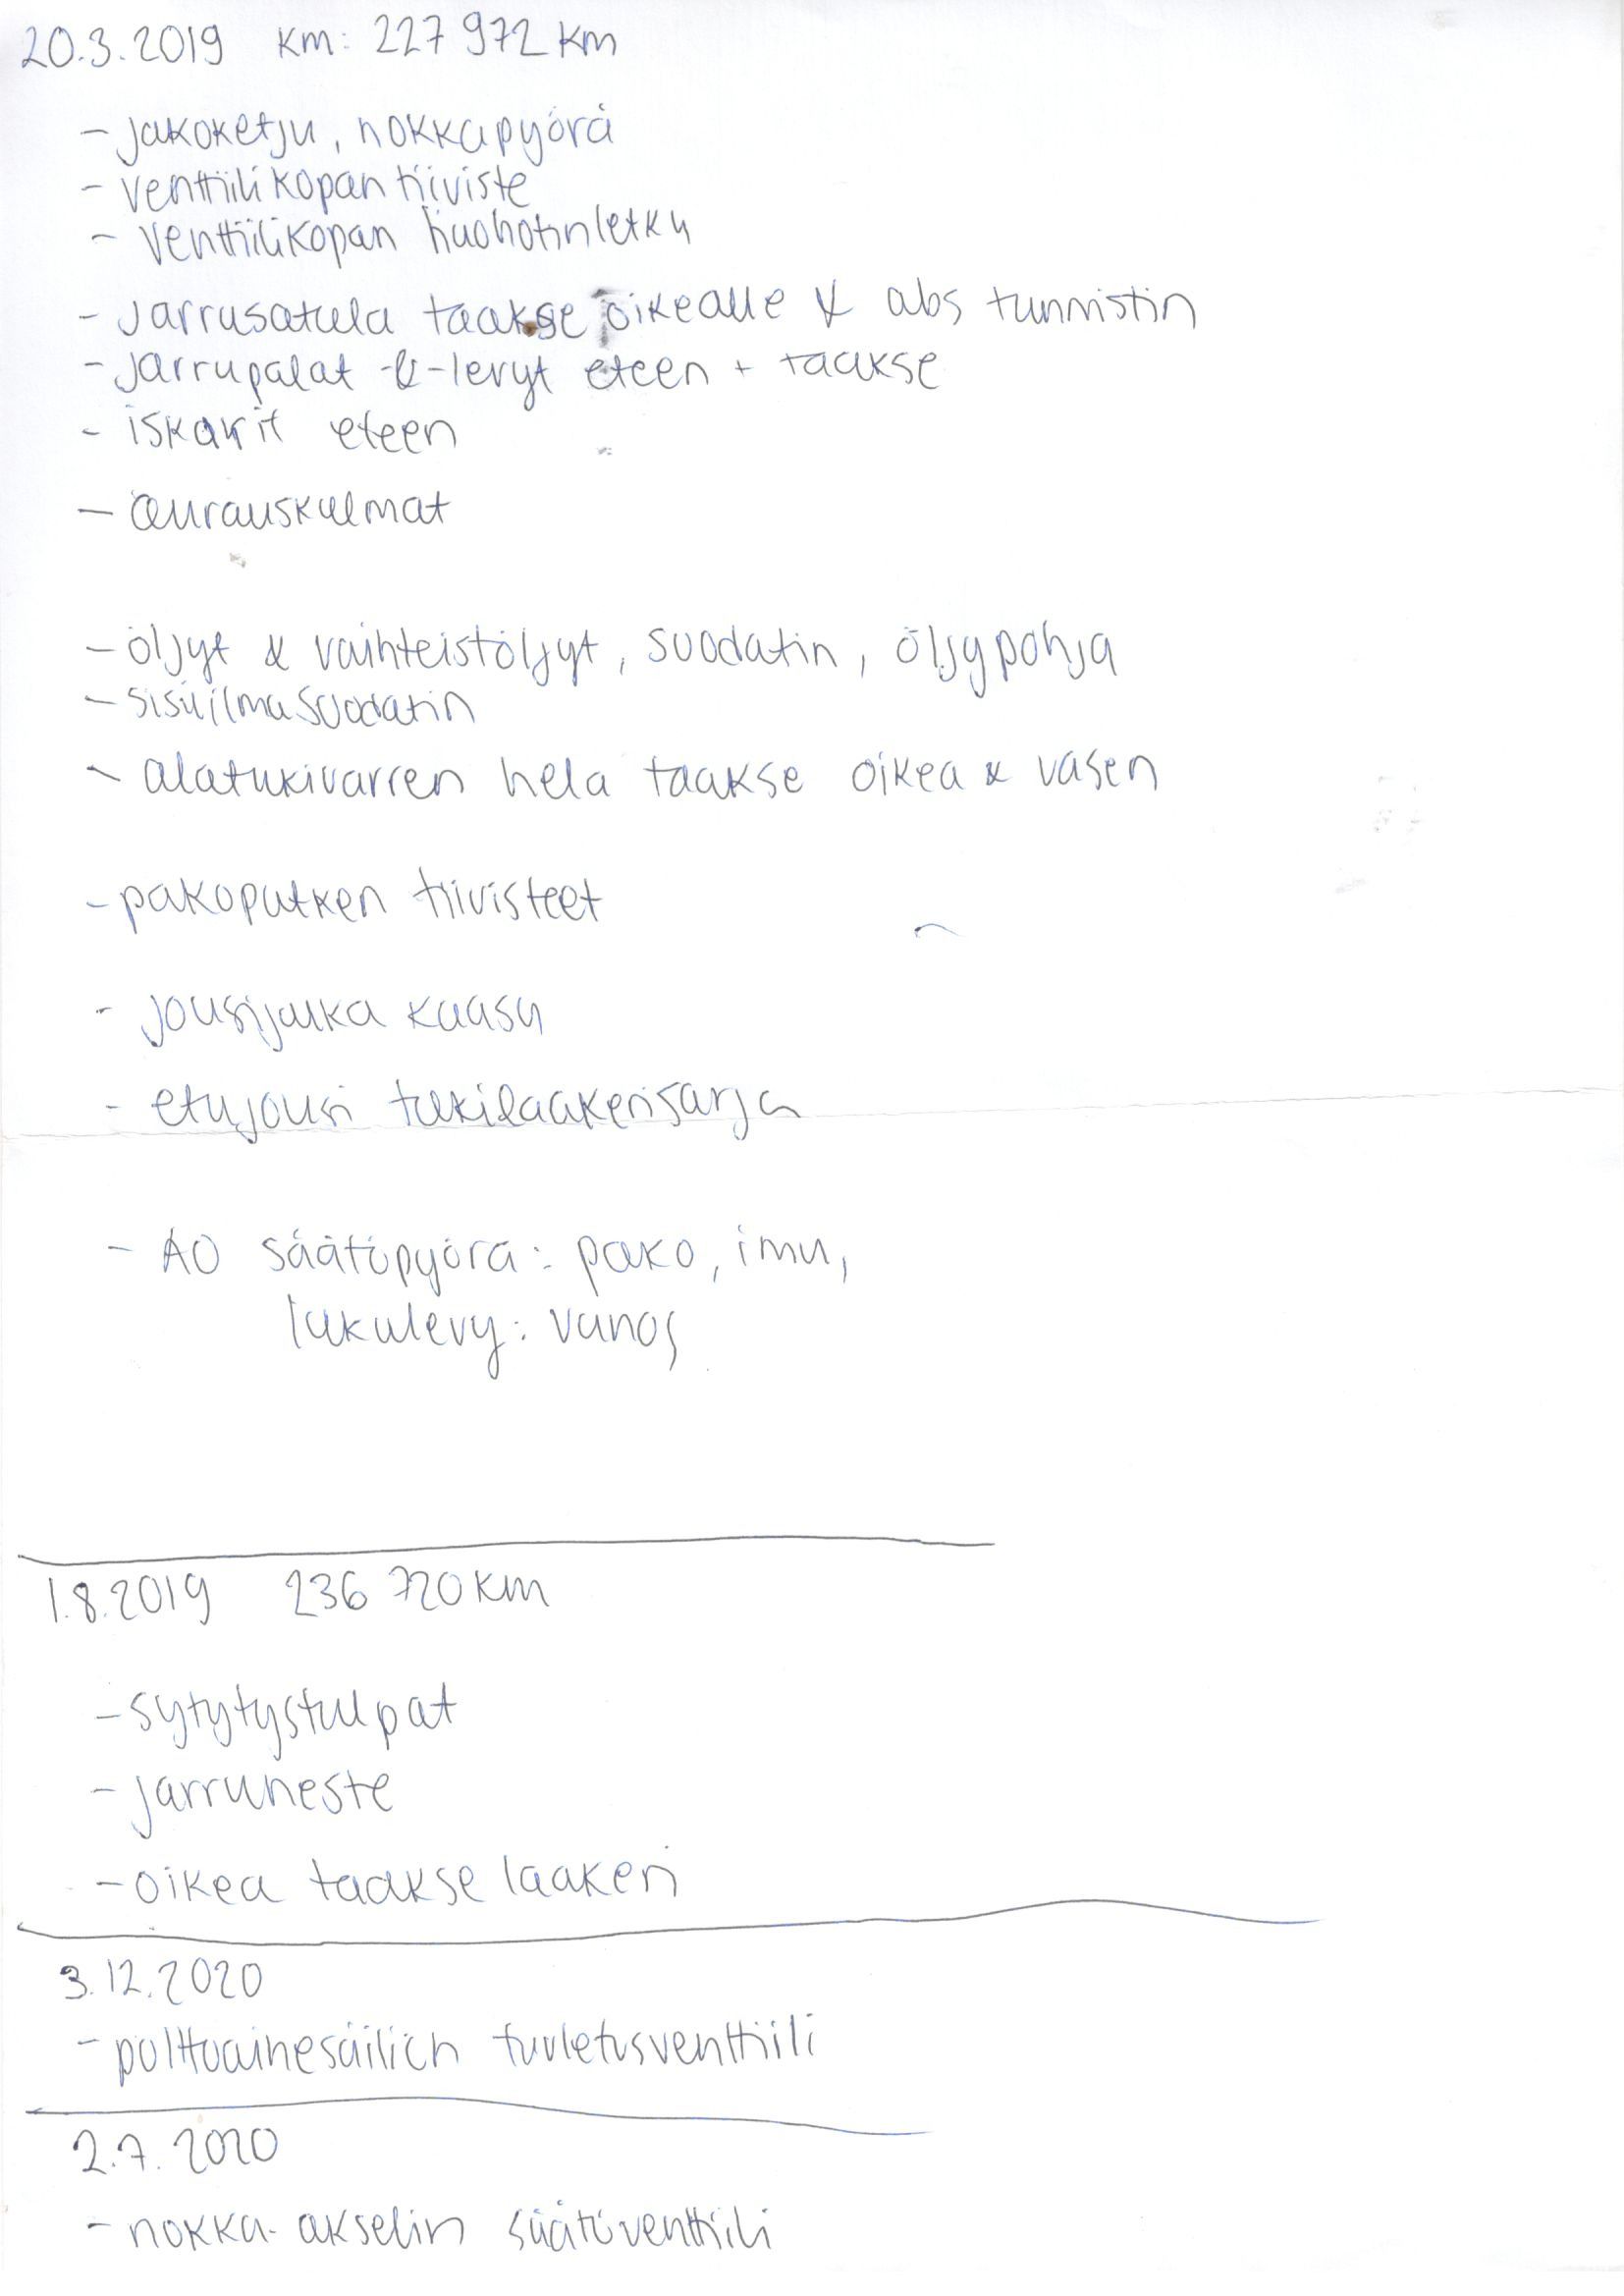 20.3.2019 km: 227 972 km
- jakoketju, nokkapyörä
- venttiilikopan tiiviste
- venttiilikopan huohotinletku
- jarrusatula taakse oikealle & abs tunnistin
- jarrupalat & -levyt eteen + taakse
- iskarit eteen
- aurauskulmat
- öljyt & vaihteistöljyt, suodatin, öljypohja
- sisäilmasuodatin
- alatukivarren hela taakse oikea & vasen
- pakoputken tiivisteet
- jousijalka kaasu
- etujousi tukilaakerisarja
- AO säätöpyörä: pako, imu,
lukulevy: vanos
1.8.2019 236 720 km
- sytytystulpat
- jarruneste
- oikea taakse laakeri
3.12.2020
- polttoainesäiliön tuuletusventtiili
2.7.2020
- nokka-akselin säätöventtiili